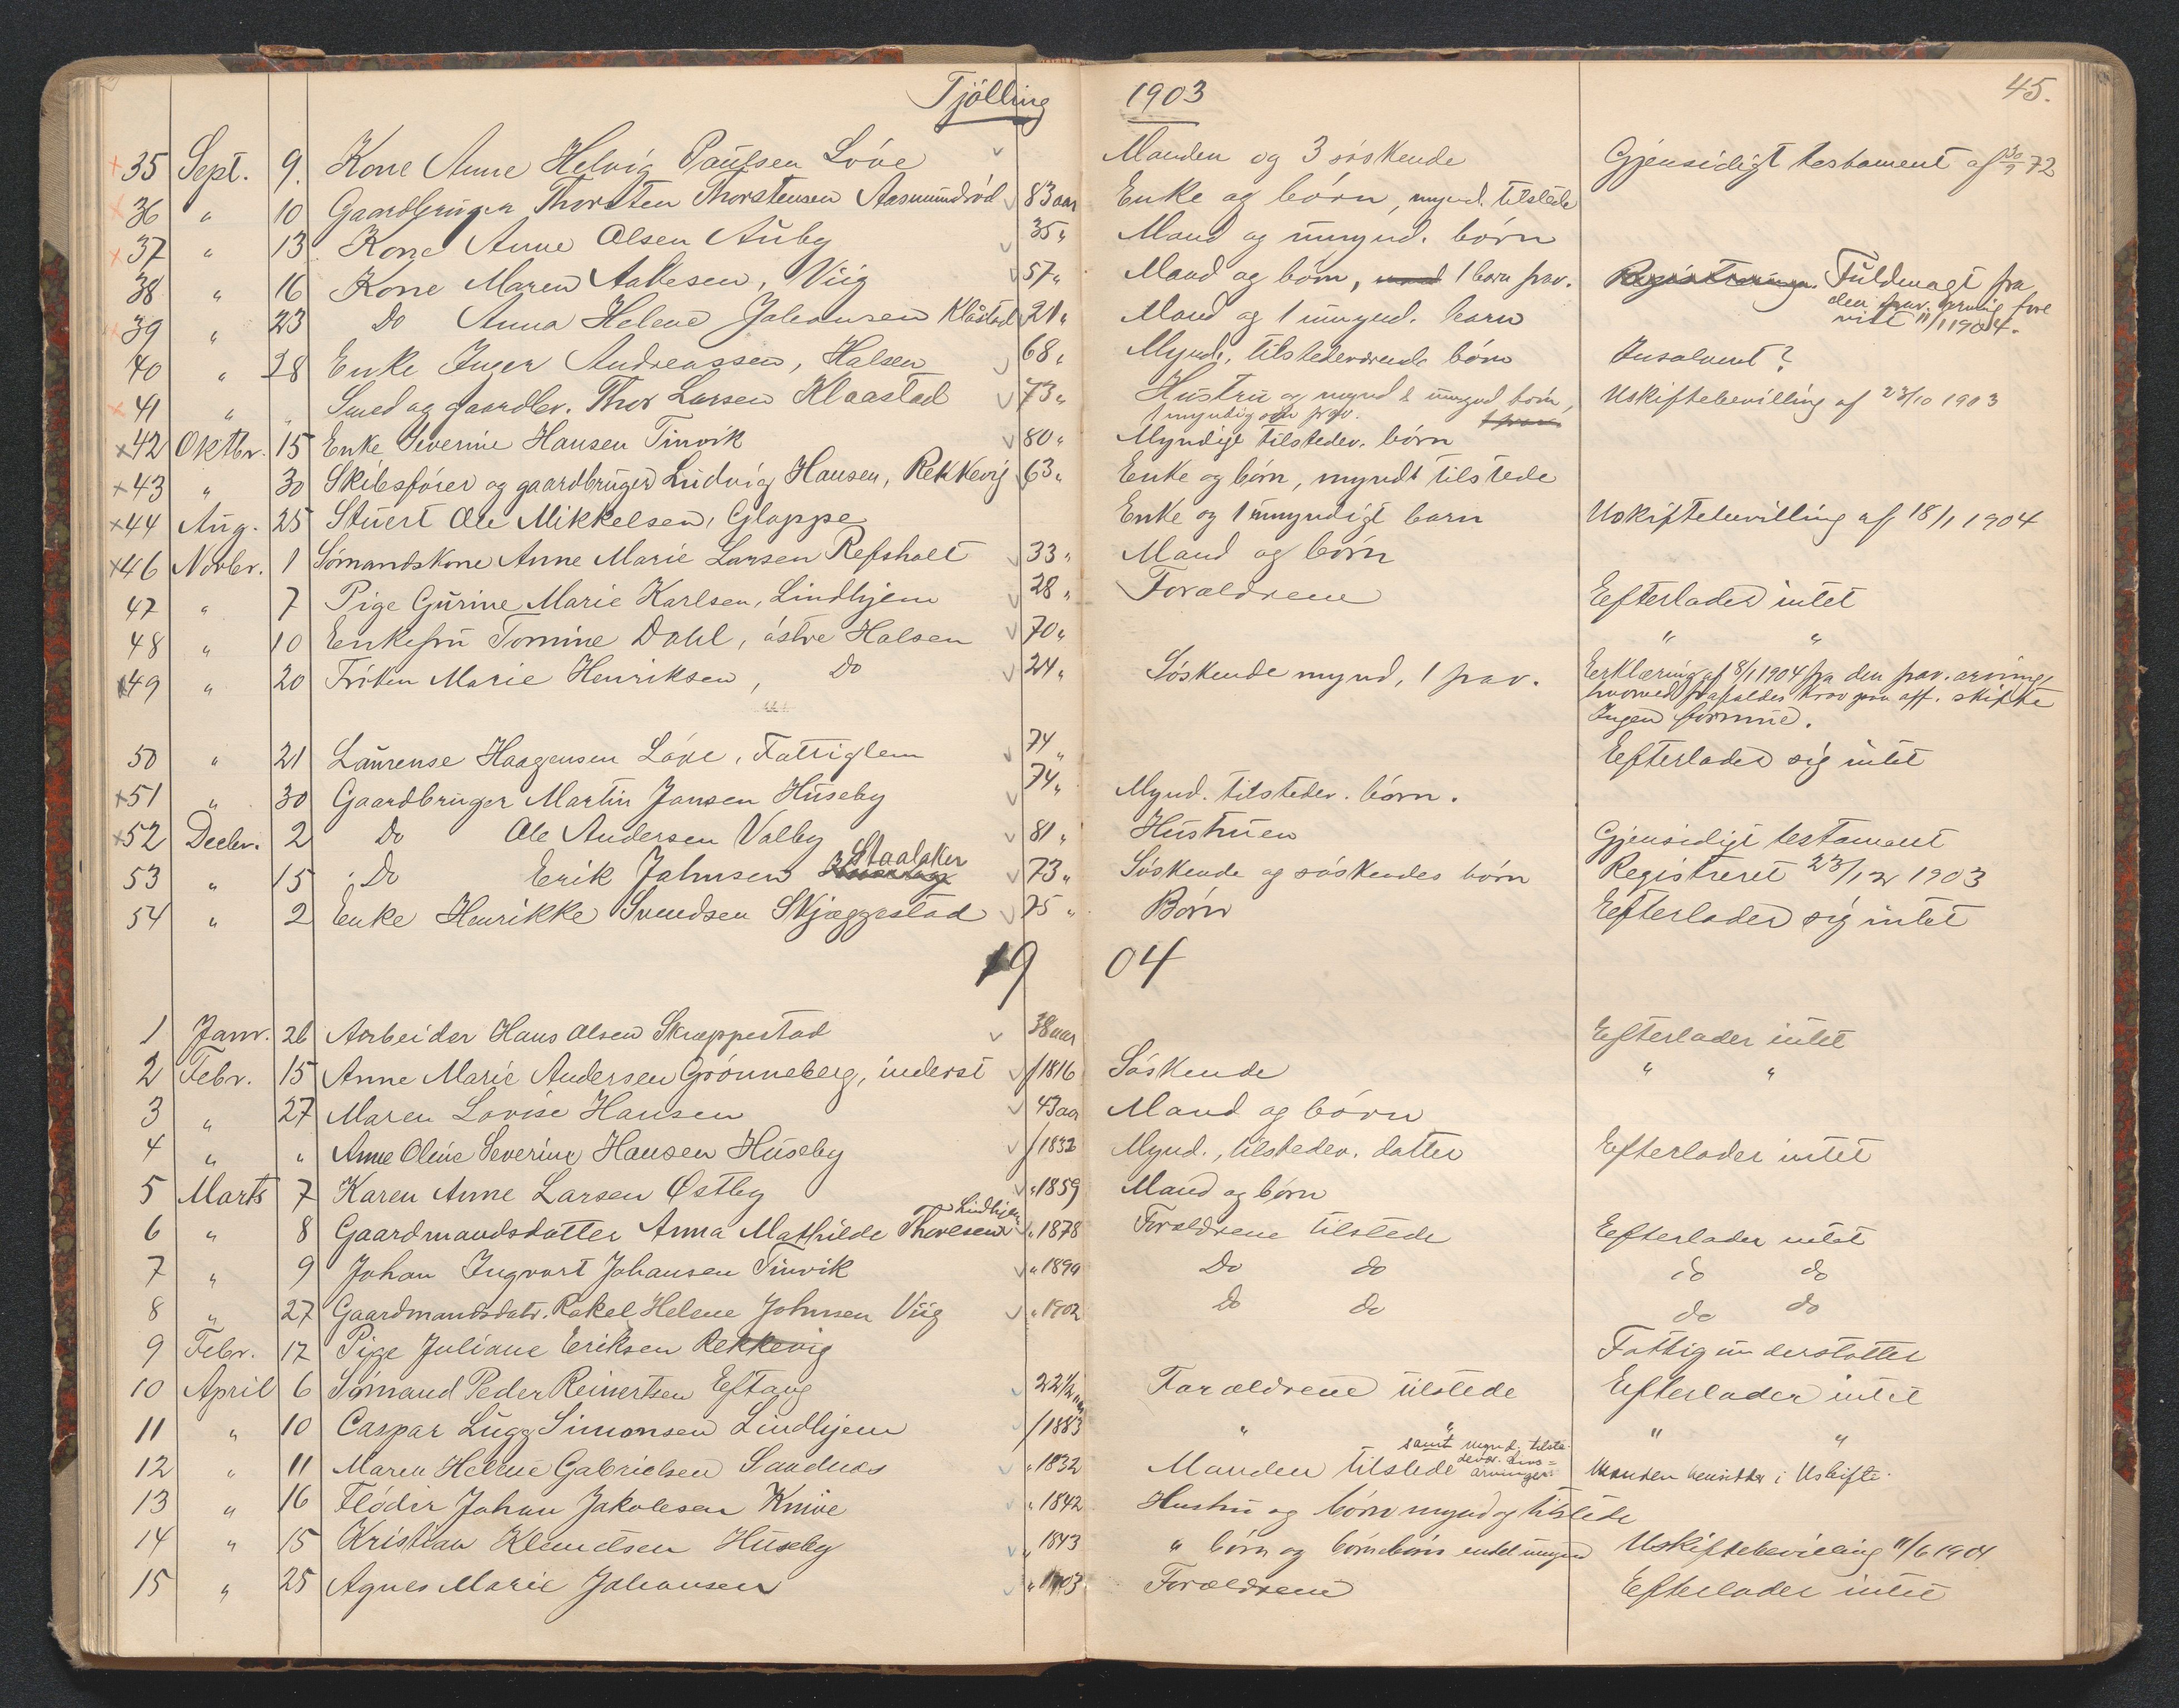 Tjølling 1903 45.
35 Sept. 9. Kone Anne Helvig Paulsen Løve Manden og 3 søskende Gjensidigt testament af 72
36 " 10 Gaardbruger Thorsten Thorstensen Aasmundrød 83 aar Enke og børn, mynd. tilstede
37 " 13 Kone Anne Olsen Auby 35 " Mand og umynd. børn
38 " 16 Kone Maren Aakesen, Viig 57 " Mand og børn, 1 barn frav. Registreringen. Fuldmagt fra
den frav. arving fore
39 " 23 Do Anna Helene Johansen Klåstad 21 " Mand og 1 umynd. barn vist 11/1 1904.
40 " 28 Enke Inger Andreassen, Halsen 68 " Mynd. tilstedeværende børn Insolvent?
41 " " Smed og gaardbr. Thor Larsen Klaastad 73 " Hustru og mynd & umynd børn, Uskiftebevilling af 23/10 1903
1 myndig søn frav.
42 Oktbr. 15 Enke Severine Hansen Tinvik 80 " Myndige tilstedev. børn
43 " 30 Skibsfører og gaardbruger Ludvig Hansen, Rekkevig 63 " Enke og børn, myndt tilstede
44 Aug. 25 Stuert Ole Mikkelsen, Gloppe Enke og 1 umyndigt barn Uskiftebevilling af 18/1 1904
46 Novbr. 1 Sømandskone Anne Marie Larsen Refsholt 33 " Mand og børn
47 " 7 Pige Gurine Marie Karlsen, Lindhjem 28 " Forældrene Efterlader intet
48 " 10 Enkefru Tomine Dahl, østre Halsen 70 " " "
49 " 20 Frøken Marie Henriksen, Do 24 " Søskende mynd, 1 frav. Erklæring af 8/1 1904 fra den frav. arving,
hvorved frafaldes krav paa off. skifte
Ingen formue.
50 " 21 Laurense Haagensen Løve, Fattiglem 74 " Efterlader sig intet
51 " 30 Gaardbruger Martin Jansen Huseby 74 " Mynd. tilstedev. børn.
52 Decbr. 2 Do Ole Andersen Valby 81 " Hustruen Gjensidigt testament
53 " 15 Do Erik Johnsen Staalaker 73 " Søskende og søskendes børn Registreret 23/12 1903
54 " 2 Enke Henrikke Svendsen Skjæggestad 75 " Børn Efterlader sig intet
1904
1 Janr. 26 Arbeider Hans Olsen Skreppestad 38 aar Efterlader intet
2 Febr. 15 Anne Marie Andersen Grønneberg, inderst f 1816 Søskende " "
3 " 27 Maren Lovise Hansen 43 aar Mand og børn
4 " " Anne Oline Severine Hansen Huseby f 1832 Mynd., tilstedev. datter Efterlader intet
5 Marts 7 Karen Anne Larsen Østby " 1859 Mand og børn
6 " 8 Gaardmandsdatter Anna Mathilde Thoresen Lindhjem " 1878 Forældrene tilstede Efterlader intet
7 " 9 Johan Ingvart Johansen Tinvik " 1899 Do do do do
8 " 27 Gaardmandsdatr. Rakel Helene Johnsen Viig " 1902 Do do do do
9 Febr. 17 Pige Juliane Eriksen Rekkevig Fattigunderstøttet
10 April 6 Sømand Peder Reinertsen Eftang 22 1/2 aar Forældrene tilstede Efterlader intet
11 " 10 Caspar Lugg Simonsen Lindhjem f 1883 " " " "
12 " 11 Maren Helene Gabrielsen Sandnæs " 1832 Manden tilstede samt mynd. tilste-
devær. livs-
arvinger. Manden hensidder i Uskifte.
13 " 16 Fløder Johan Jakobsen Knive " 1842 Hustru og børn mynd og tilstede
14 " 15 Kristian Klemetsen Huseby " 1843 " børn og børnebørn Uskiftebevilling 11/6 1904
15 " 25 Agnes Marie Johansen " 1903 Forældrene Efterlader intet